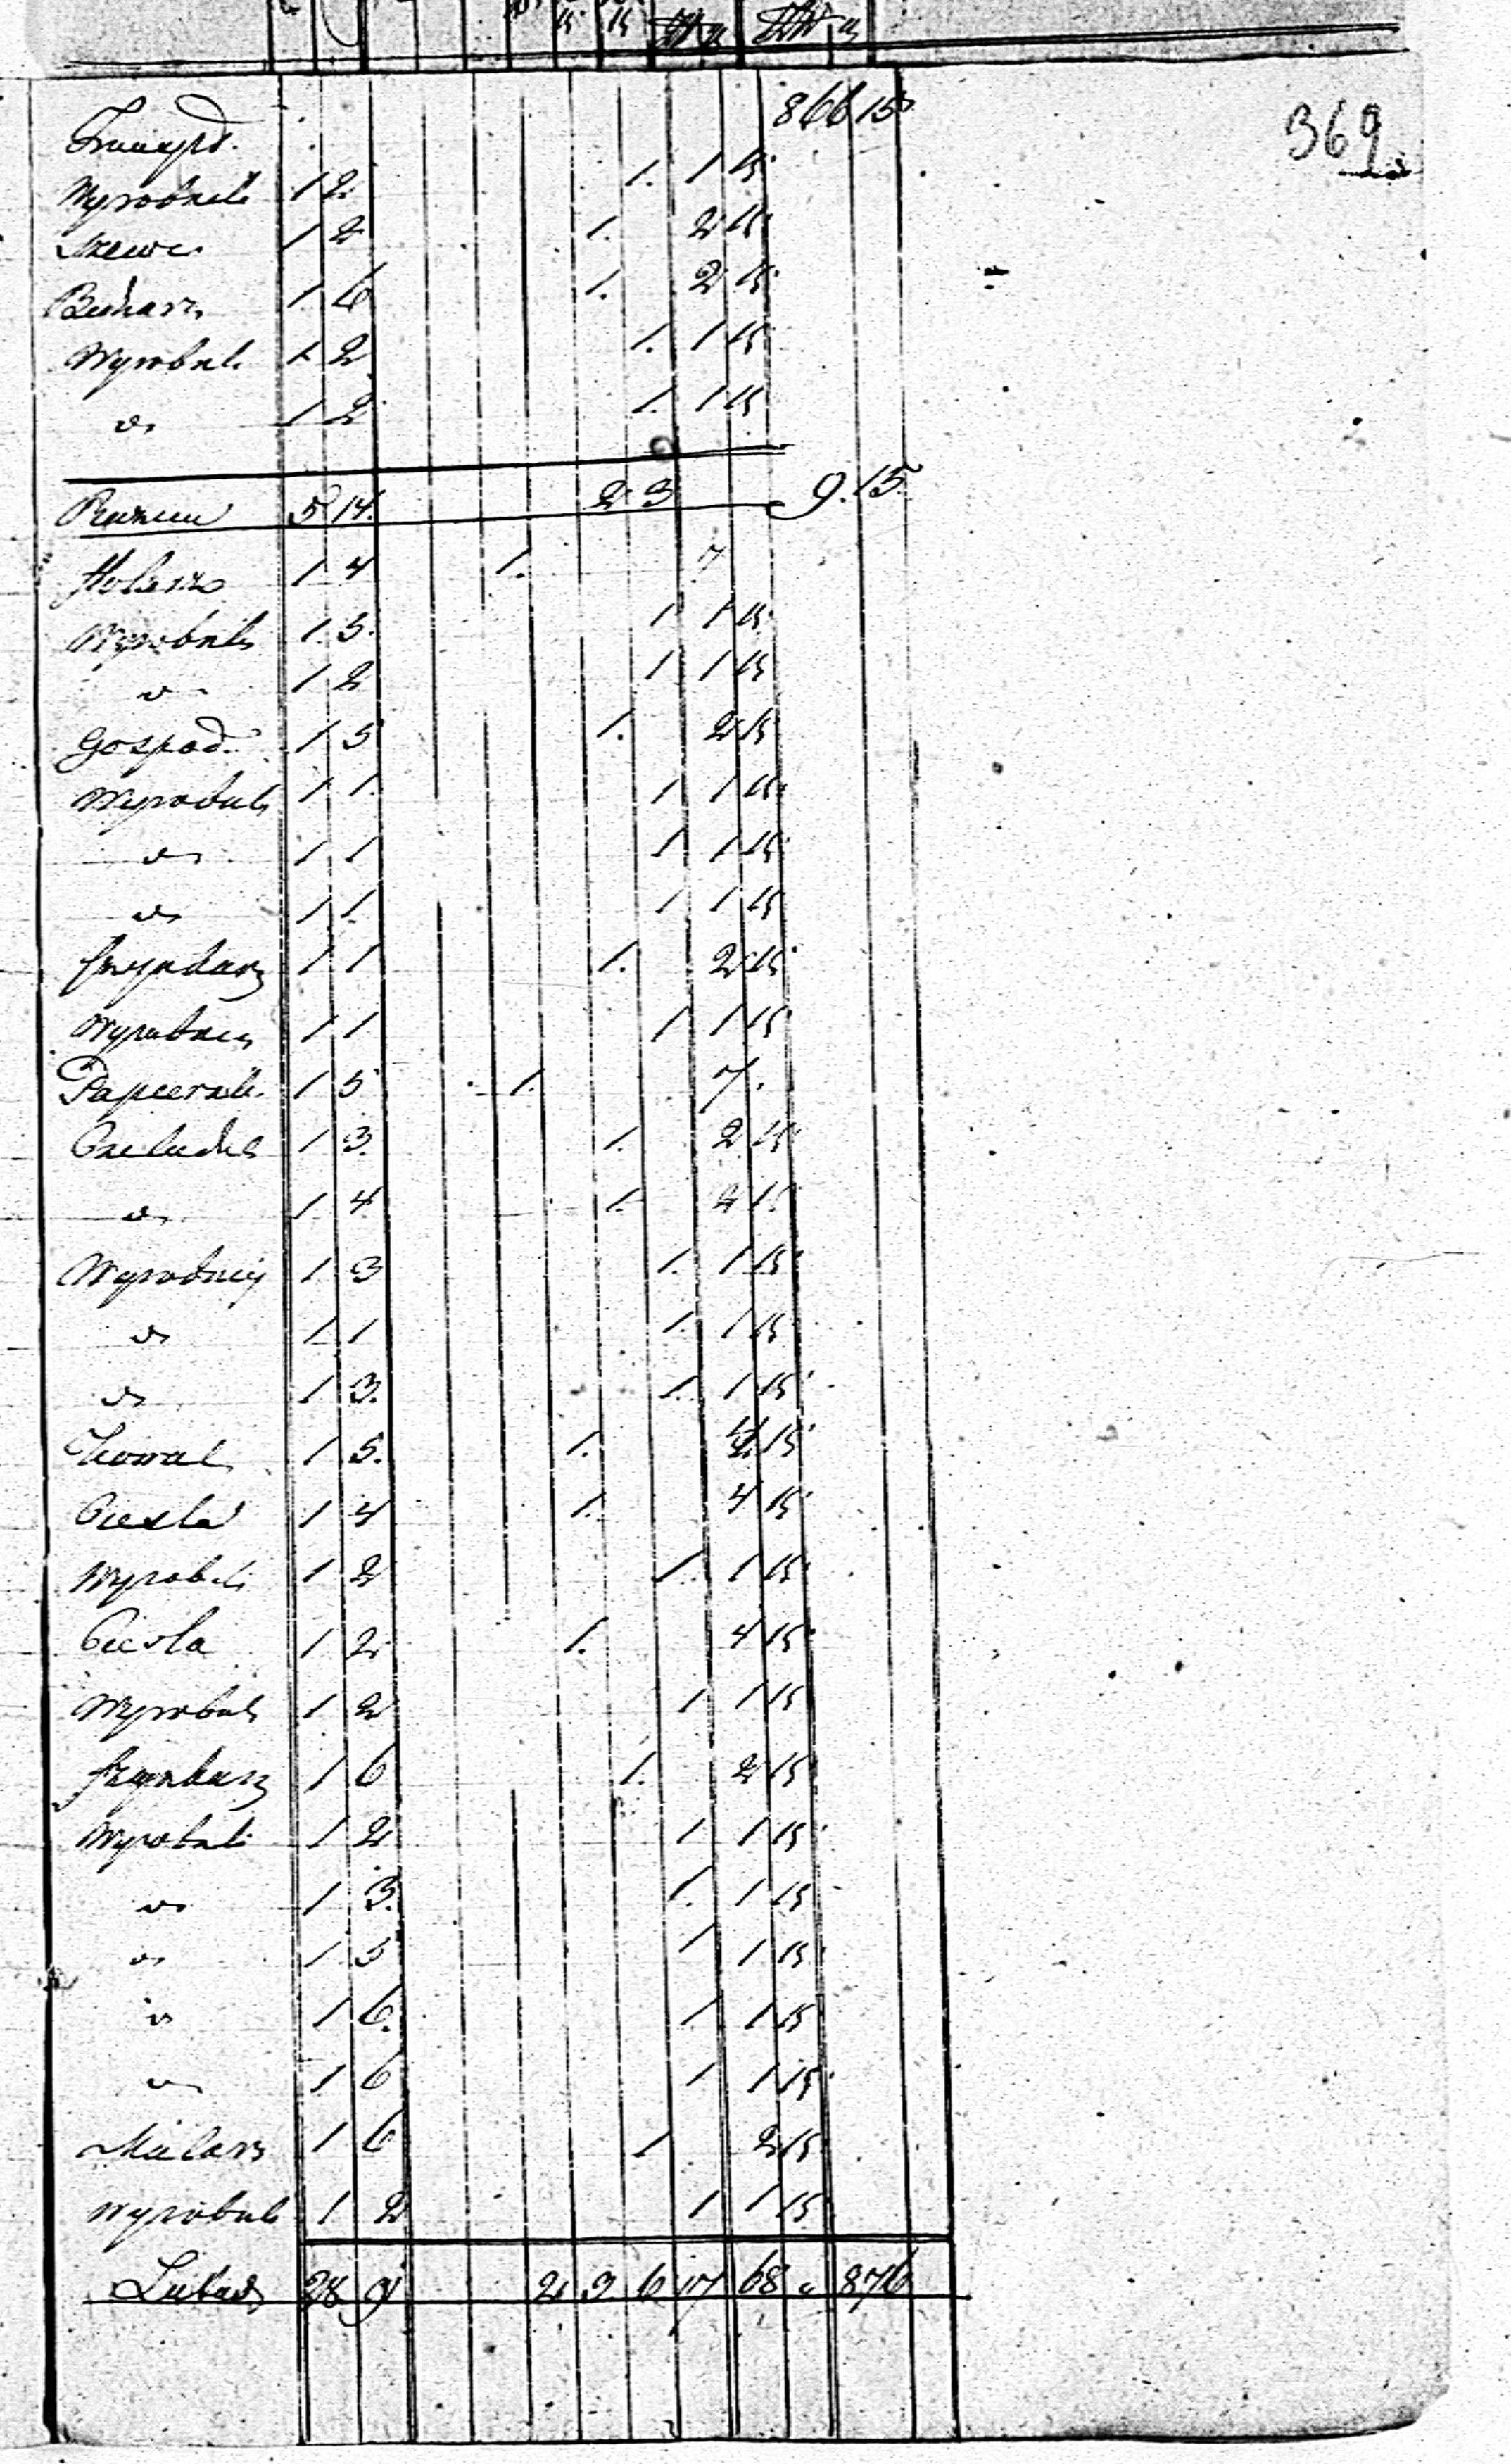 866 15
369
Wyrobnik 1 2 1. 1 15
Szewc 1 2 1. 2 15
1 6 1. 2 15
Wyrobnik 1 2 1. 1 15
do 1 2 1. 1 15
Razem 5 14. 2 3 9. 15
1 4 1. 7
Wyrobnik 1 3. 1 1 15
do 1 2 1 1 15
Gospod. 1 5 1. 2 15
Wyrobnik 1 1. 1 1 15
do 1 1 1 1 15
do 1 1. 1 1 15
1 1 1. 2 15
Wyrobnik 1 1 1 1 15
Papiernik 1 5 1. 7.
Czeladnik 1 3. 1. 2 15
do 1 4 1. 2 15
Wyrobnik 1 3 1. 1 15
do 1 1 1. 1 15
do 1 3. 1. 1 15
Kowal 1 5. 1. 4 15
Ciesla 1 4 1. 4 15
Wyrobnik 1 2 1. 1 15
Ciesla 1 2 1. 4 15
Wyrobnik 1 2 1 1 15
1 6 1. 2 15
Wyrobnik 1 2 1 1 15
do 1 3. 1. 1 15
do 1 5 1 1 15
do 1 6. 1 1 15
do 1 6 1 1 15
1 6 1 2 15
Wyrobnik 1 2 1 1 15
Latus 28 91 2 3 6 17 68 " 876